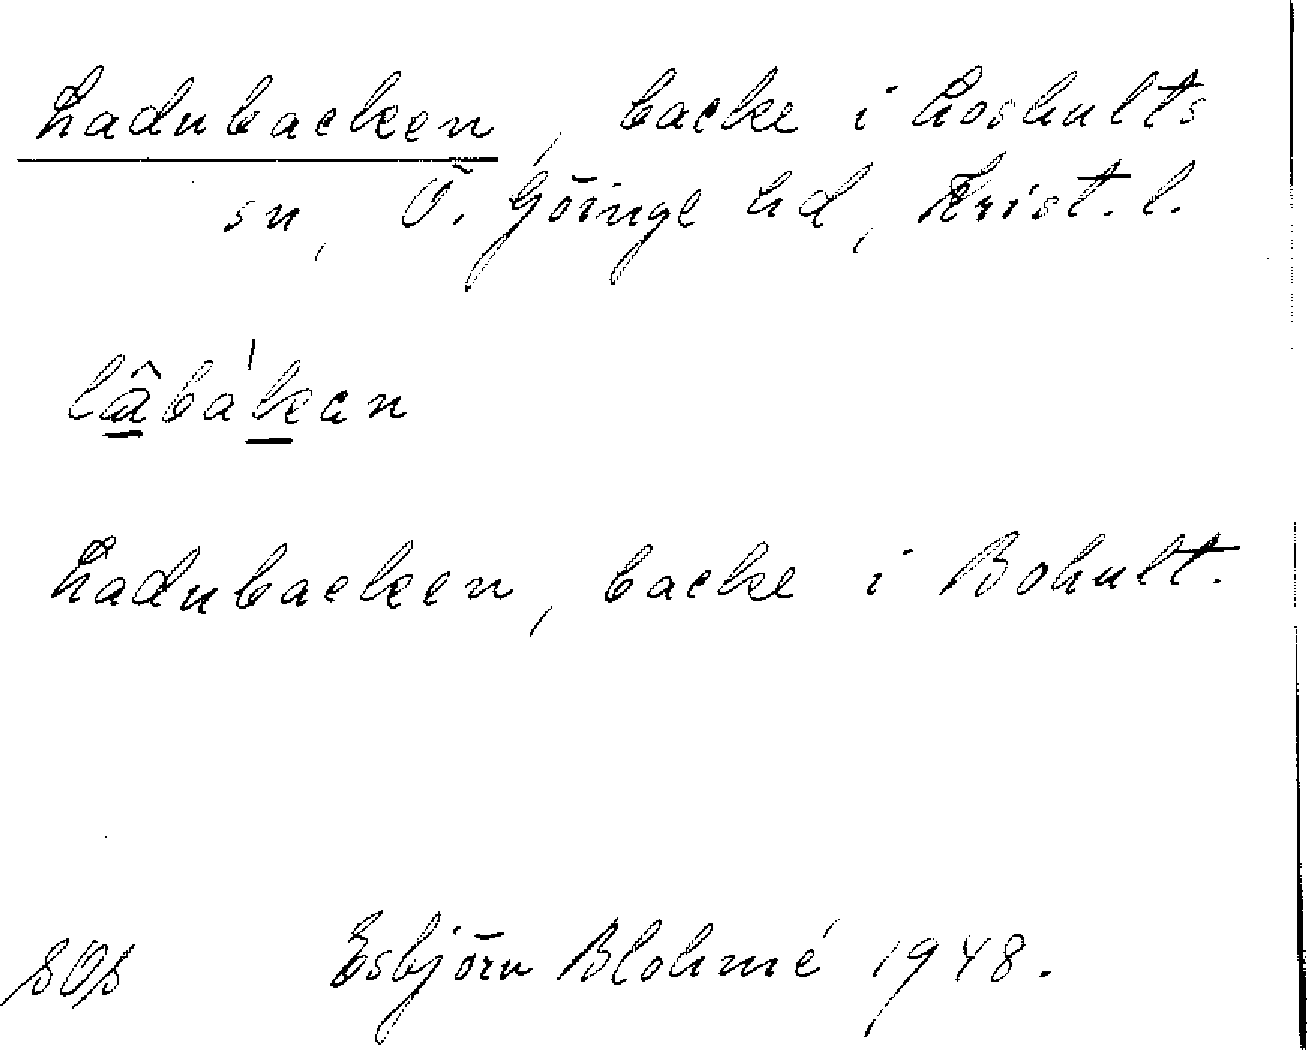 Ladubacken, backe i Loshults
sn, Ö. Göinge hd, Krist. l.
lâbá'kan
Ladubacken, backe i Bohult.
Esbjörn Blohmé 1948.